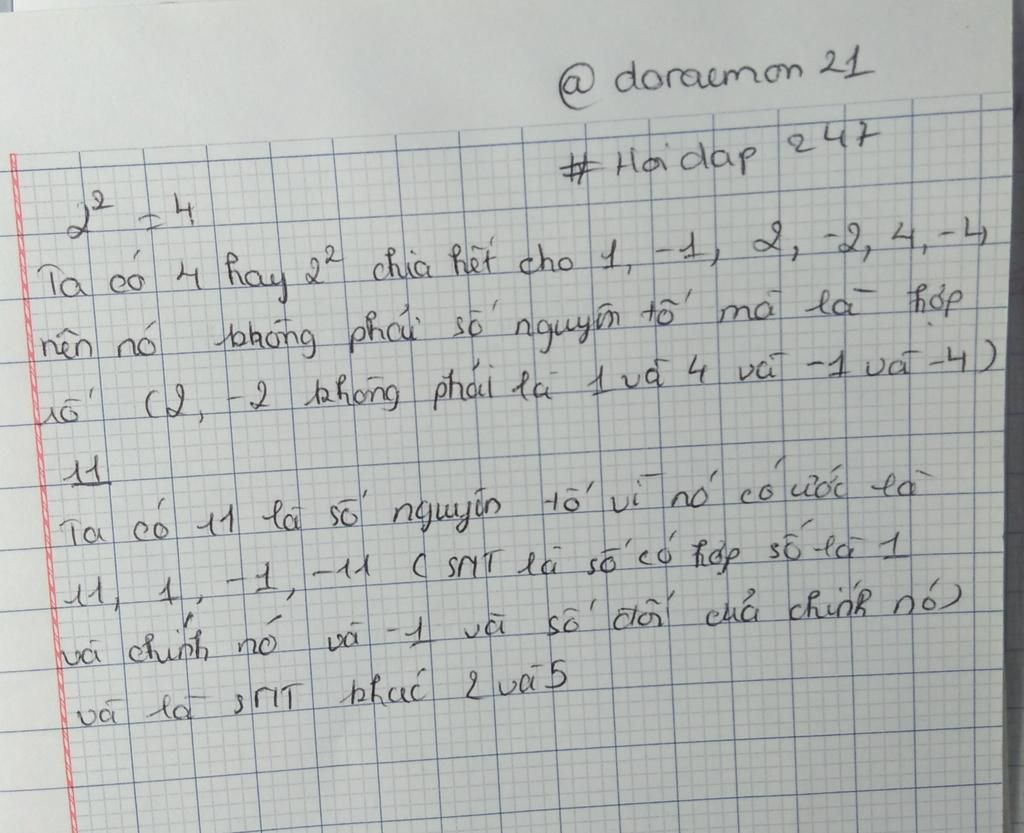 @ doraemon 21
# Hoidap 247
2² = 4
Ta có 4 hay 2² chia hết cho 1, -1, 2, -2, 4, -4
nên nó không phải số nguyên tố mà là hợp
số (2, -2 không phải là 1 và 4 và -1 và -4)
11
Ta có 11 là số nguyên tố vì nó có ước là
11, 1, -1, -11 ( SNT là số có hợp số là 1
và chính nó và -1 và số đối của chính nó)
và là SNT khác 2 và 5